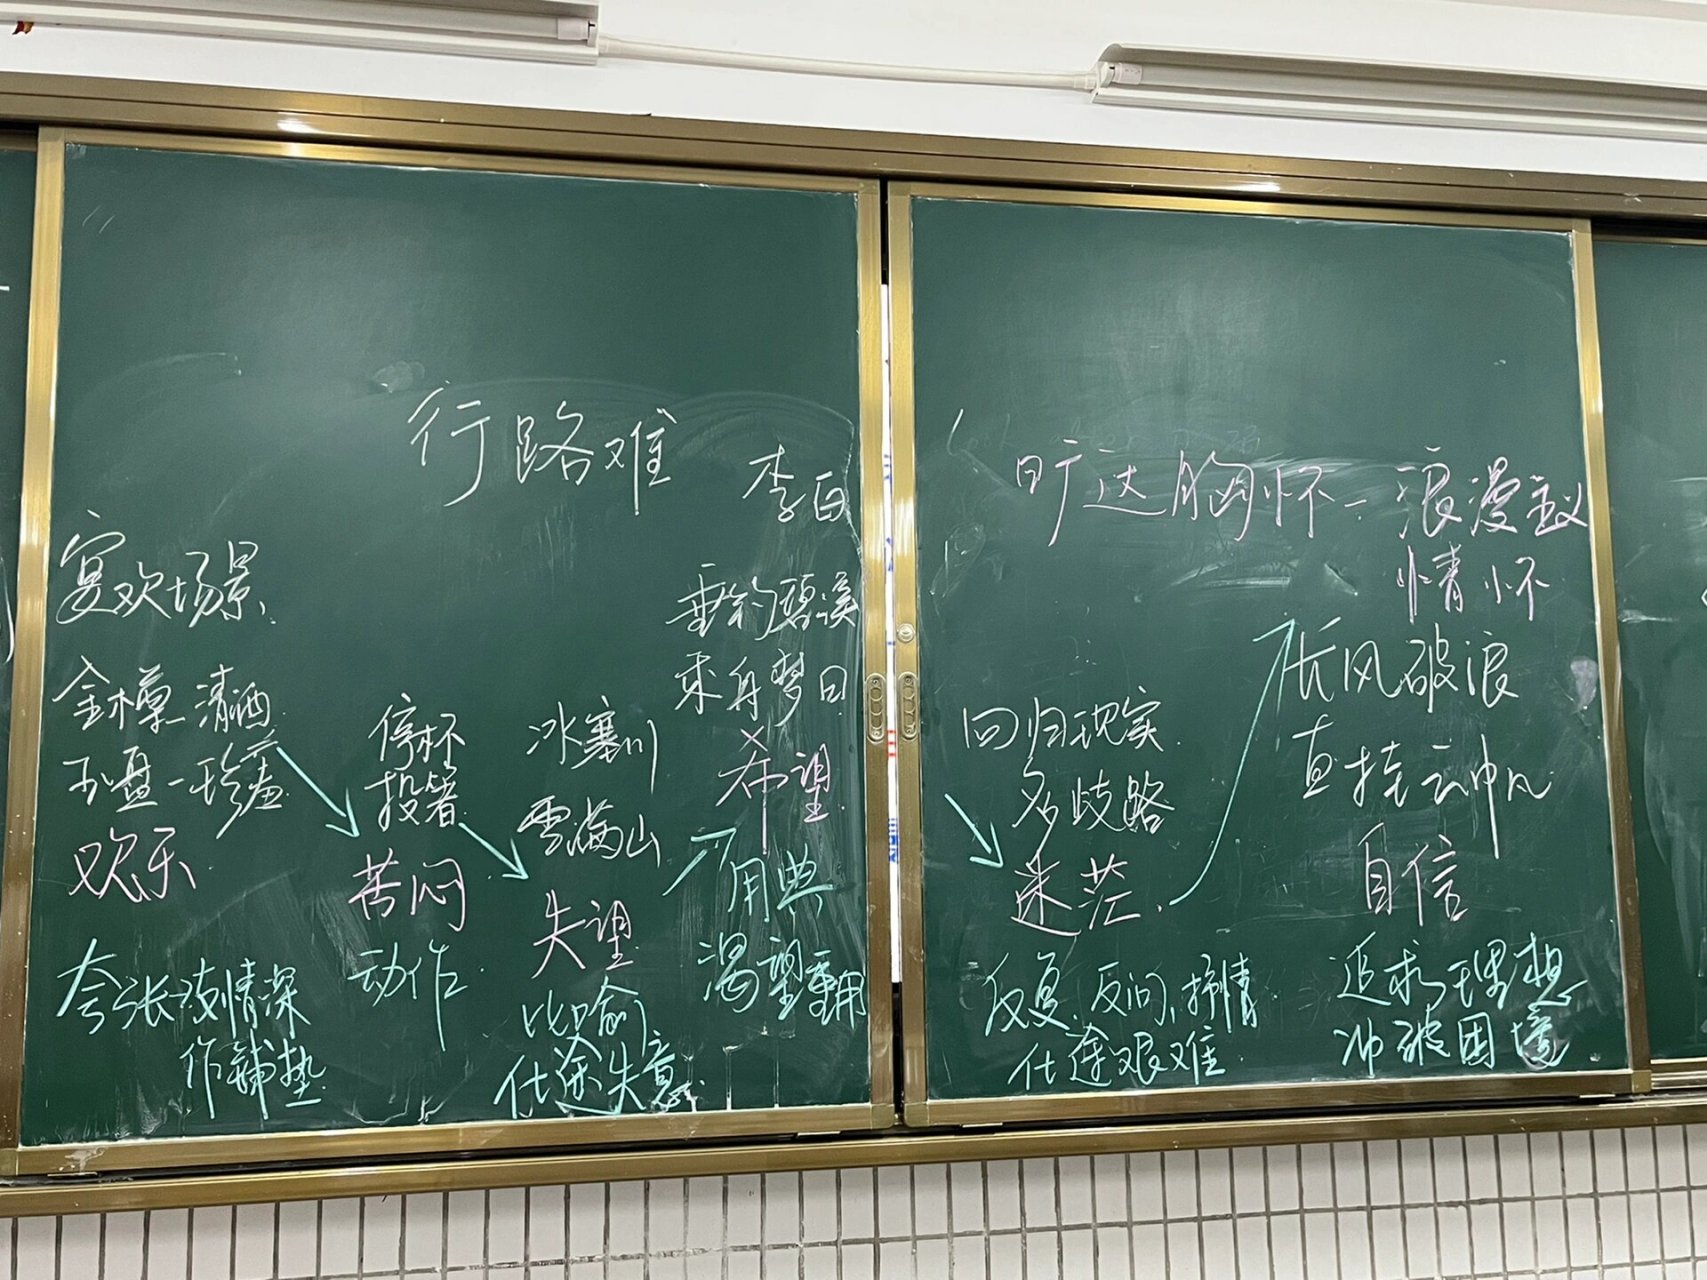 行路难
李白
宴欢场景
金樽-清酒
玉盘-珍羞
欢乐
夸张
友情深
作铺垫
停杯
投箸
苦闷
动作
冰塞川
雪满山
失望
比喻
仕途失意
垂钓碧溪
乘舟梦日
希望
用典
渴望重用
旷达胸怀-浪漫主义
情怀
回归现实
多歧路
迷茫
反复、反问、抒情
仕途艰难
长风破浪
直挂云帆
自信
追求理想
冲破困境